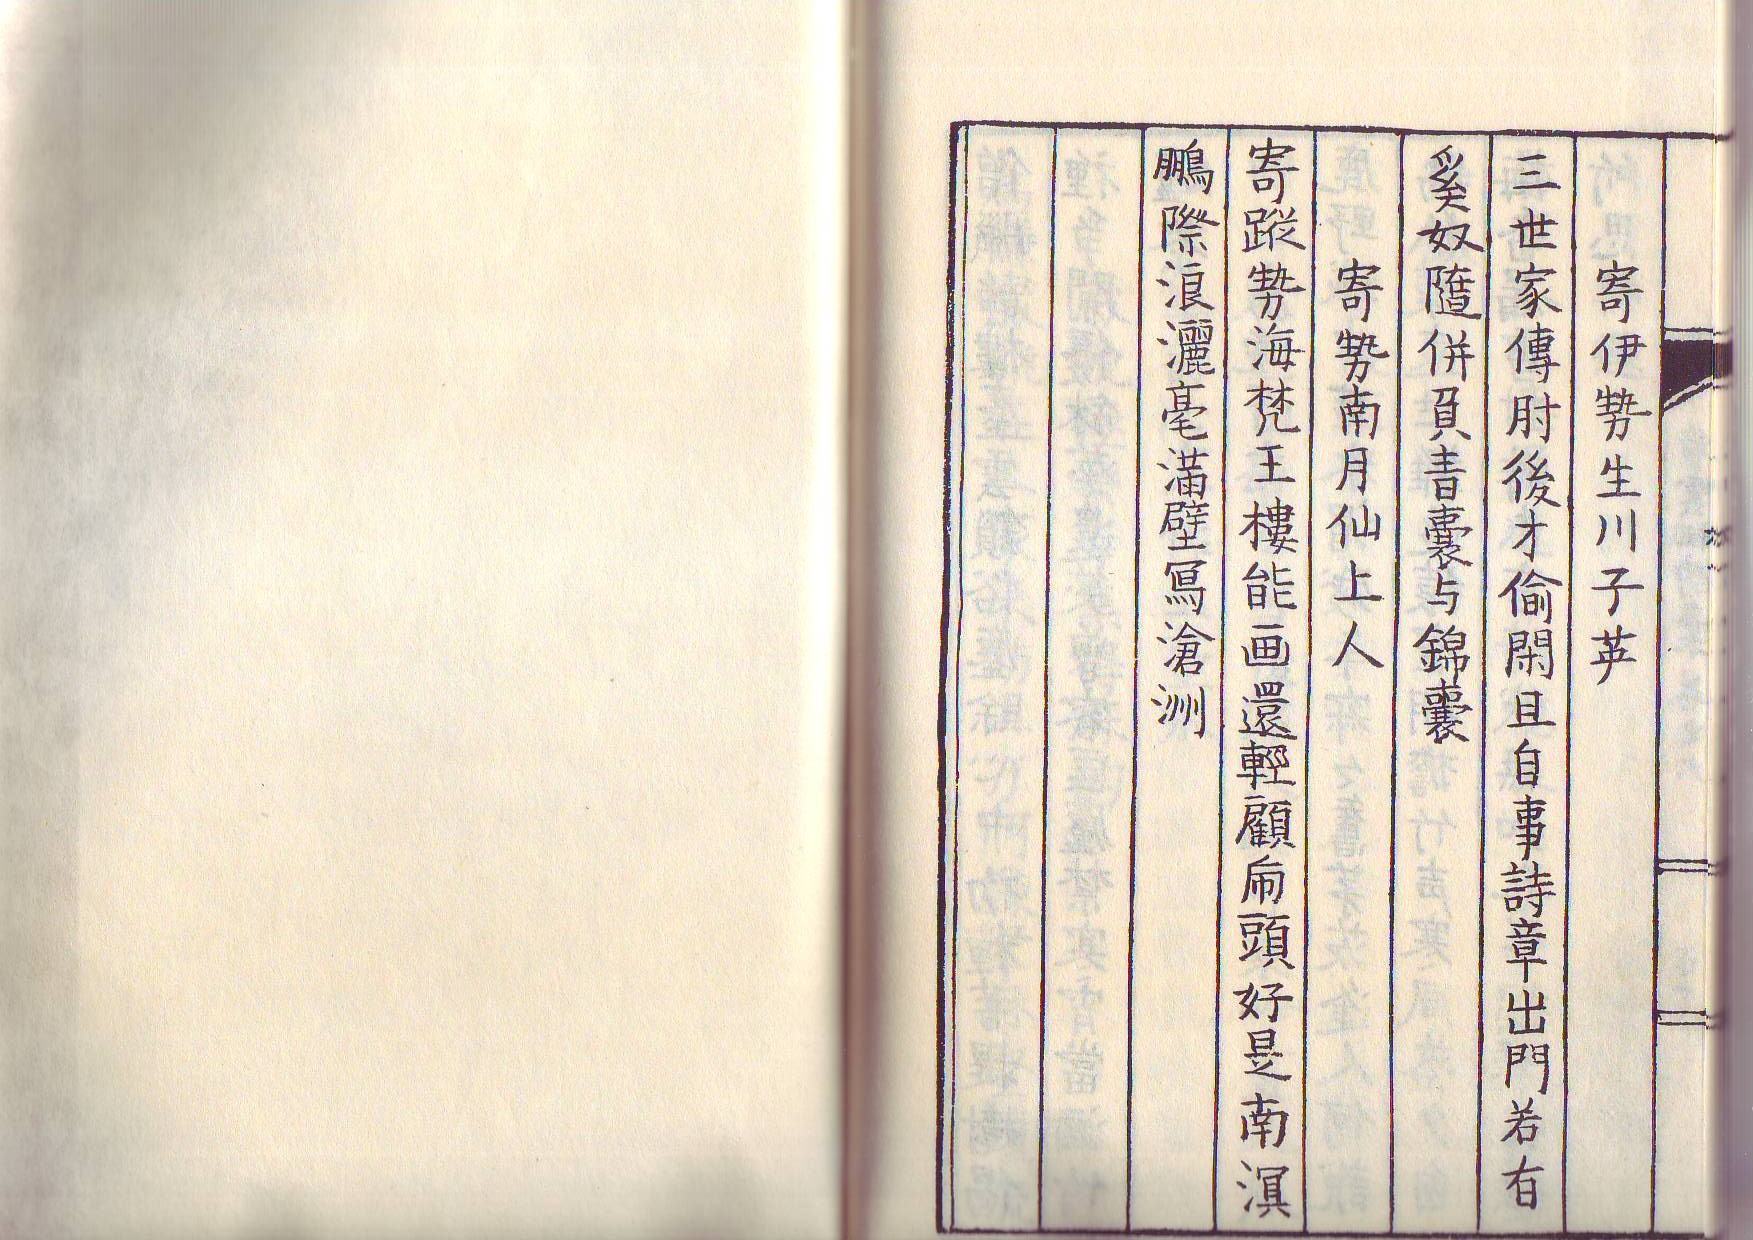 寄伊勢生川子英
三世家傳肘後才偷閑且自事詩章出門若有
奚奴随併負書囊与錦囊
寄勢南月仙上人
寄蹤勢海梵王樓能画還輕顧兩頭好是南溟
鵬際浪灑毫滿壁寫滄洲